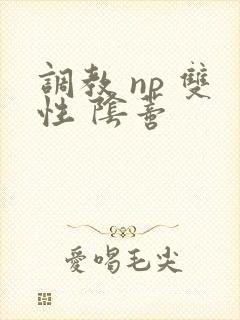 調教 np 雙
性 陰蒂
愛喝毛尖